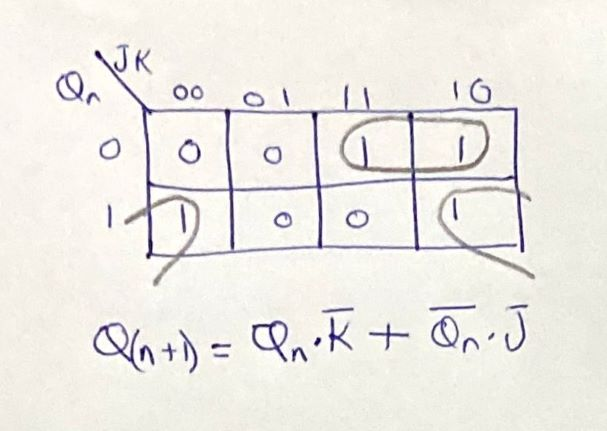 JK
Qn 00 01 11 10
0 0 0 1 1
1 1 0 0 1
Q(n+1) = Qn·K̅ + Q̅n·J̅